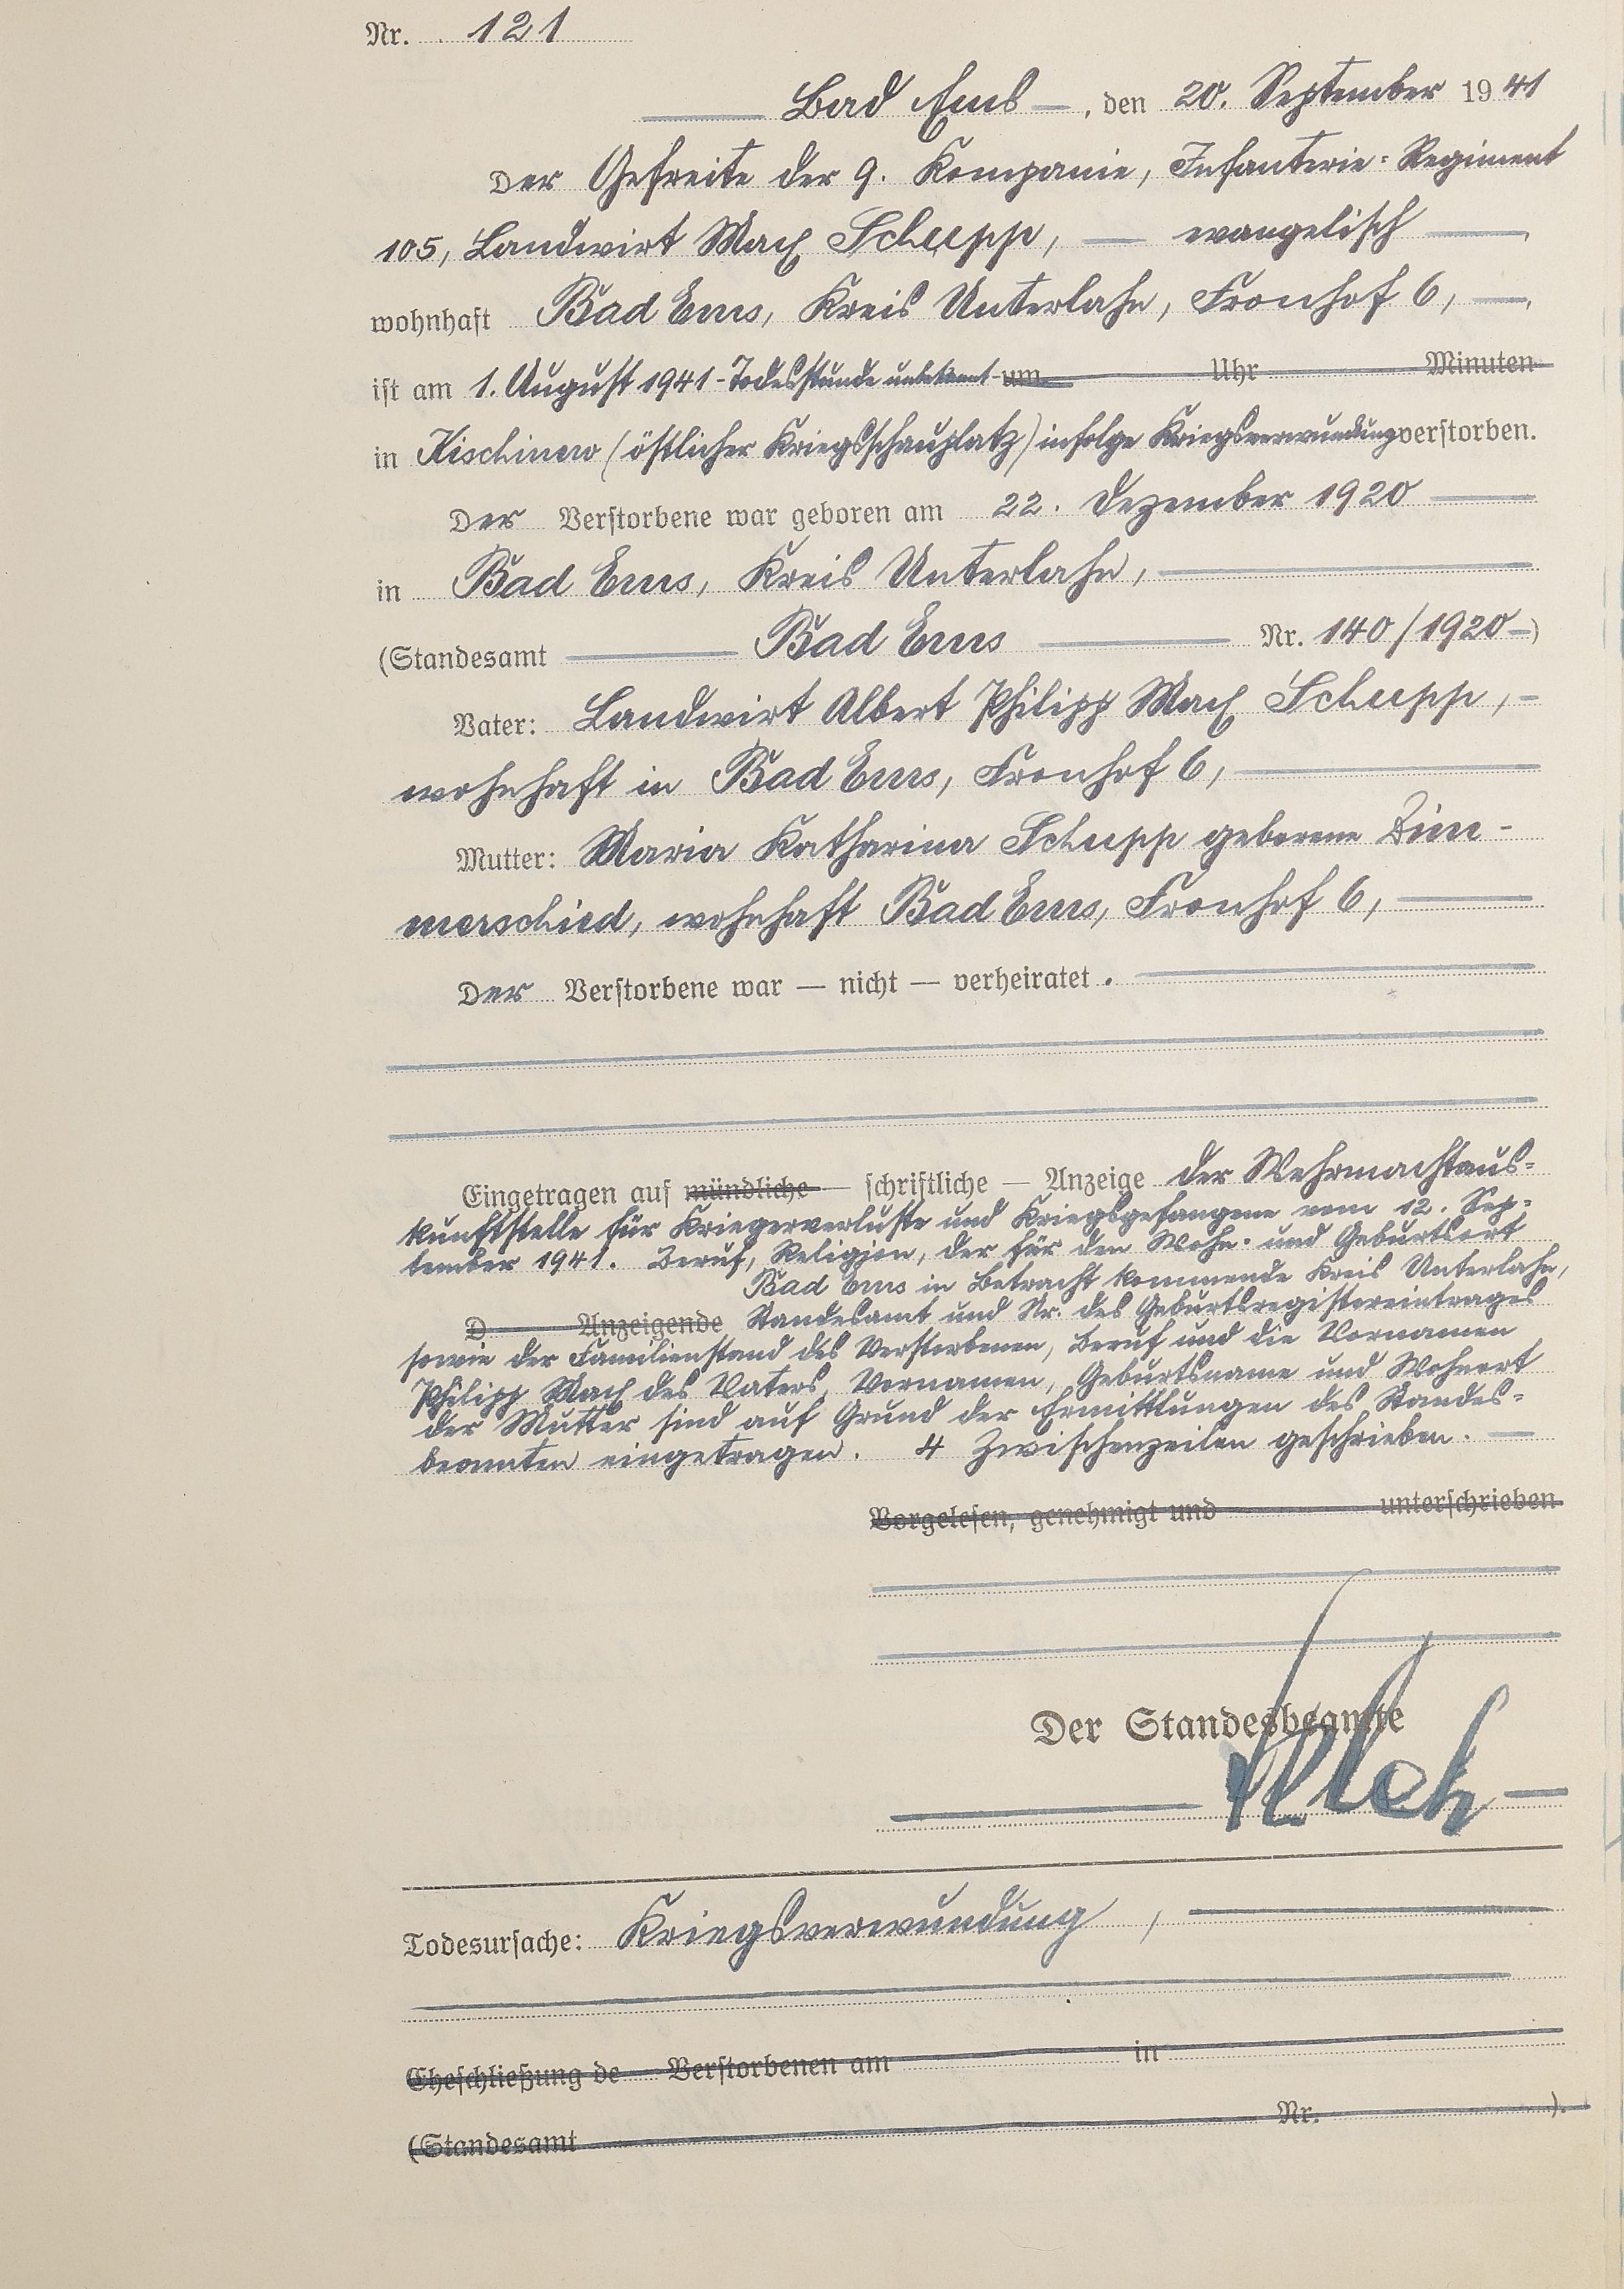 Nr. 121
Bad Ems —, den 20. September 1941
Der Gefreite der 9. Kompanie, Infanterie-Regiment
105, Landwirt Max Schupp, — evangelisch —,
wohnhaft Bad Ems, Kreis Unterlahn, Fronhof 6, —,
ist am 1. August 1941 - Todesstunde unbekannt - um Uhr Minuten
in Kischinew (östlicher Kriegsschauplatz) infolge Kriegsverwundung verstorben.
Der Verstorbene war geboren am 22. Dezember 1920 —
in Bad Ems, Kreis Unterlahn, —
(Standesamt — Bad Ems — Nr. 140/1920 —)
Vater: Landwirt Albert Philipp Max Schupp, —
wohnhaft in Bad Ems, Fronhof 6, —
Mutter: Maria Katharina Schupp geborene Dim-
merschied, wohnhaft Bad Ems, Fronhof 6, —
Der Verstorbene war — nicht — verheiratet. —
Eingetragen auf mündliche — schriftliche — Anzeige der Wehrmachtaus-
kunftstelle für Kriegerverluste und Kriegsgefangene vom 12. Sep-
tember 1941. Beruf, Religion, der für den Wohn- und Geburtsort
Bad Ems in Betracht kommende Kreis Unterlahn,
D Anzeigende Standesamt und Nr. des Geburtsregistereintrages
sowie der Familienstand des Verstorbenen, Beruf und die Vornamen
Philipp Max des Vaters, Vornamen, Geburtsname und Wohnort
der Mutter sind auf Grund der Ermittlungen des Standes-
beamten eingetragen. 4 Zwischenzeilen geschrieben. —
Vorgelesen, genehmigt und unterschrieben
Der Standesbeamte
Todesursache: Kriegsverwundung, —
Eheschließung de Verstorbenen am in
(Standesamt Nr. ).